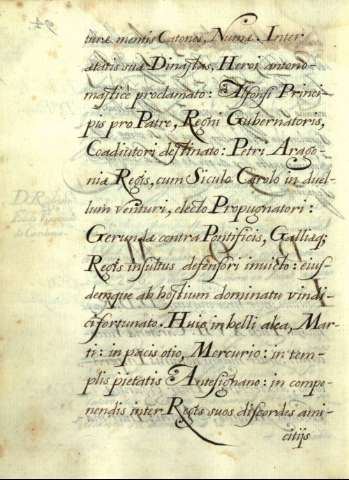 94
turæ mentis Catones, Numæ. Inter
ætatis suæ Dinastas, Heroi antono-
masticè proclamato: Alfonsi Princi-
pis pro Patre, Regni Gubernatoris,
Coadiutori destinato: Petri Arago-
niæ Regis, cum Siculo Carolo in duel-
lum venturi, electo Propugnatori:
Gerundæ contra Pontificis, Galliæq;
Regis insultus defensori invicto: eius-
demque ab hostium dominatu vindi-
ci fortunato. Huic in belli alea, Mar-
ti: in pacis otio, Mercurio: in tem-
plis pietatis Antesignano: in compo-
nendis inter Reges suos discordes ami-
citijs